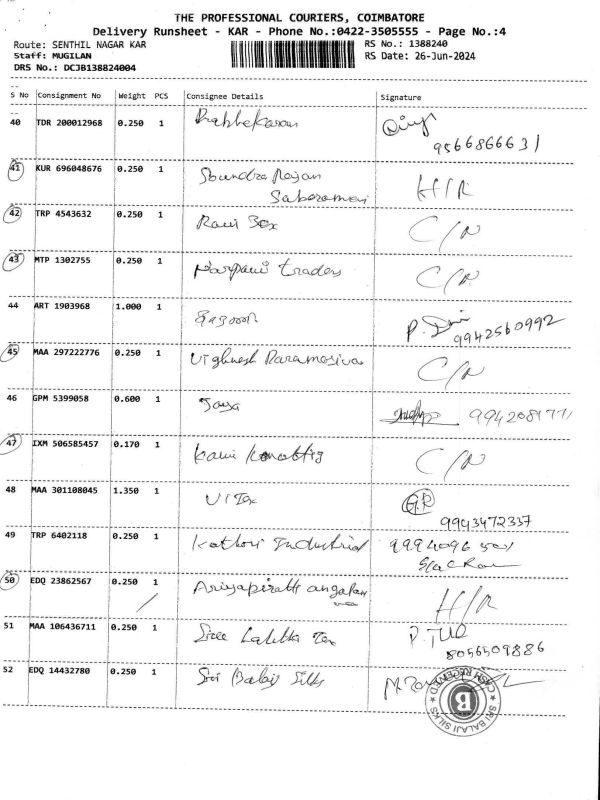 THE PROFESSIONAL COURIERS, COIMBATORE
Delivery Runsheet - KAR - Phone No.:0422-3505555 - Page No.:4
Route: SENTHIL NAGAR KAR RS No.: 1388240
Staff: MUGILAN RS Date: 26-Jun-2024
DRS No.: DCJB138824004
S No Consignment No Weight PCS Consignee Details Signature
40 TDR 200012968 0.250 1 Prabhakaran
9566866631
41 KUR 696048676 0.250 1 H/R
42 TRP 4543632 0.250 1 Ravi Tex C/N
43 MTP 1302755 0.250 1 traders C/N
44 ART 1903968 1.000 1
9942560992
45 MAA 297222776 0.250 1 Vighnesh Paramasiva C/N
46 GPM 5399058 0.600 1 Jaya
47 IXM 506585457 0.170 1 C/N
48 MAA 301108045 1.350 1 V I Tex G.R
9943472337
49 TRP 6402118 0.250 1 Kothari Industrial
50 EDQ 23862567 0.250 1 H/R
51 MAA 106436711 0.250 1 Sree Lalitha Tex
8056509886
52 EDQ 14432780 0.250 1 Sri Balaji Silks
CASH RECEIVED
B
SRI BALAJI SILKS